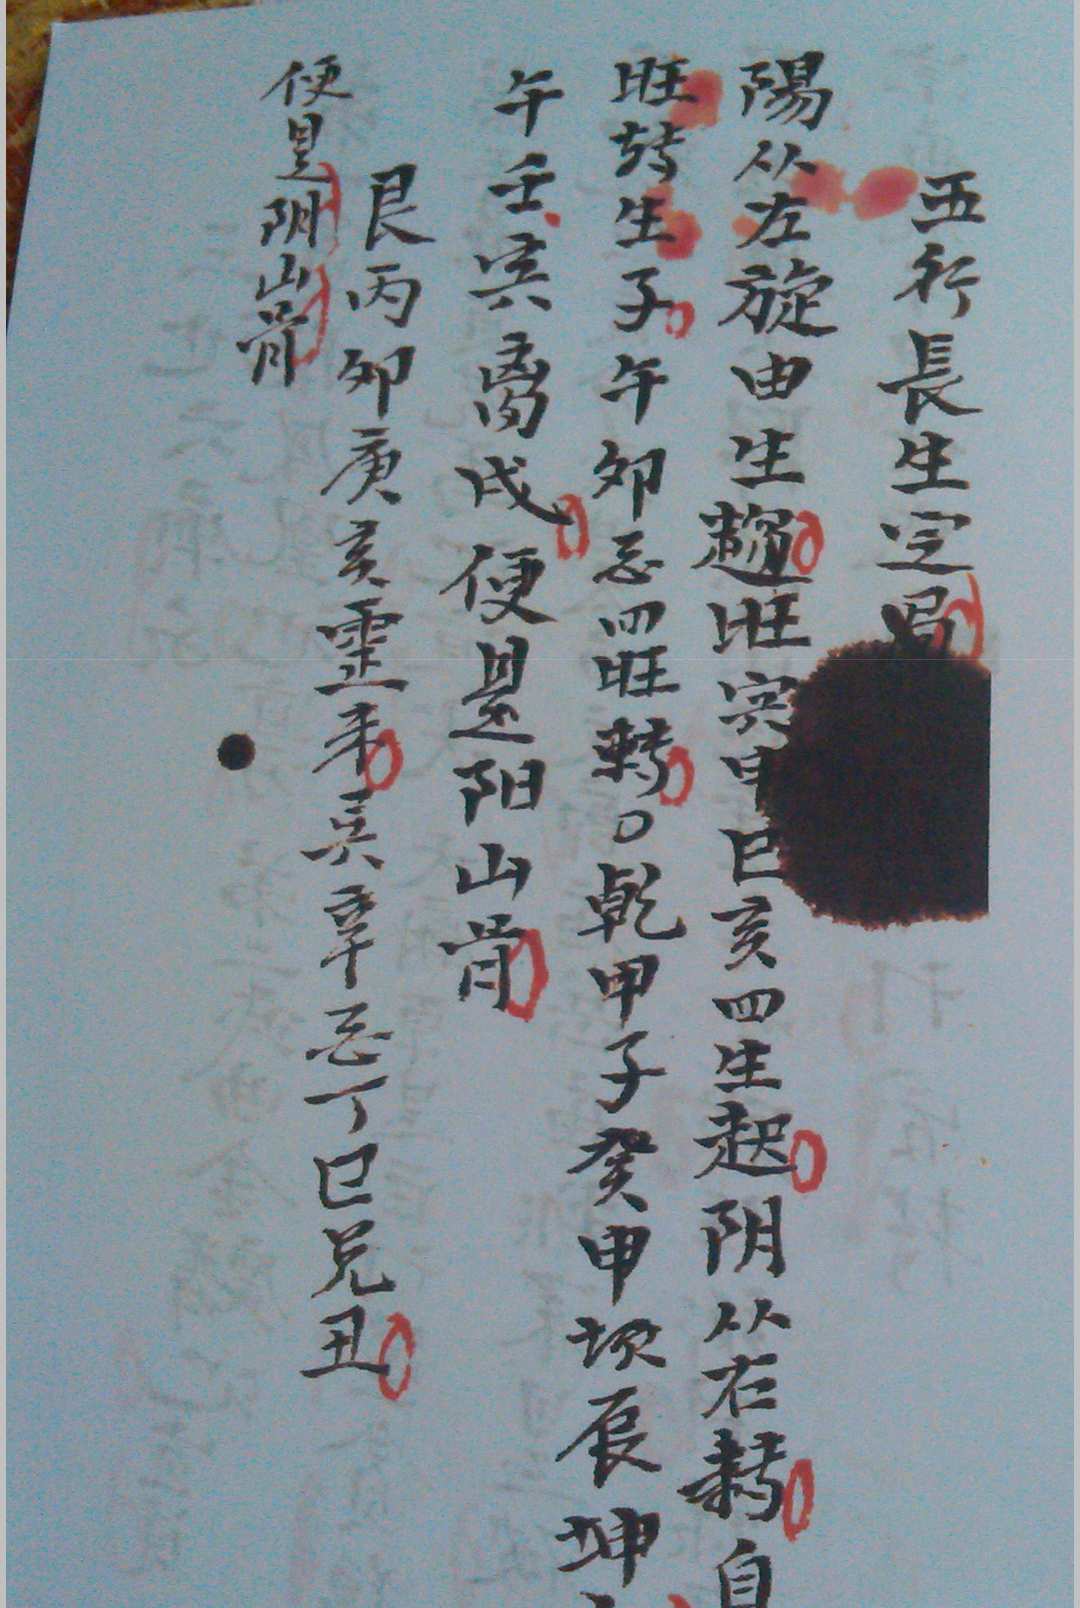 五行長生定局
陽从左旋由生趨旺寅申巳亥四生起阴从右轉自
旺转生子午卯酉四旺轉。乾甲子癸申坎辰坤
午壬寅离戌便是阳山骨
艮丙卯庚亥震未巽辛酉丁巳兑丑
便是阴山骨